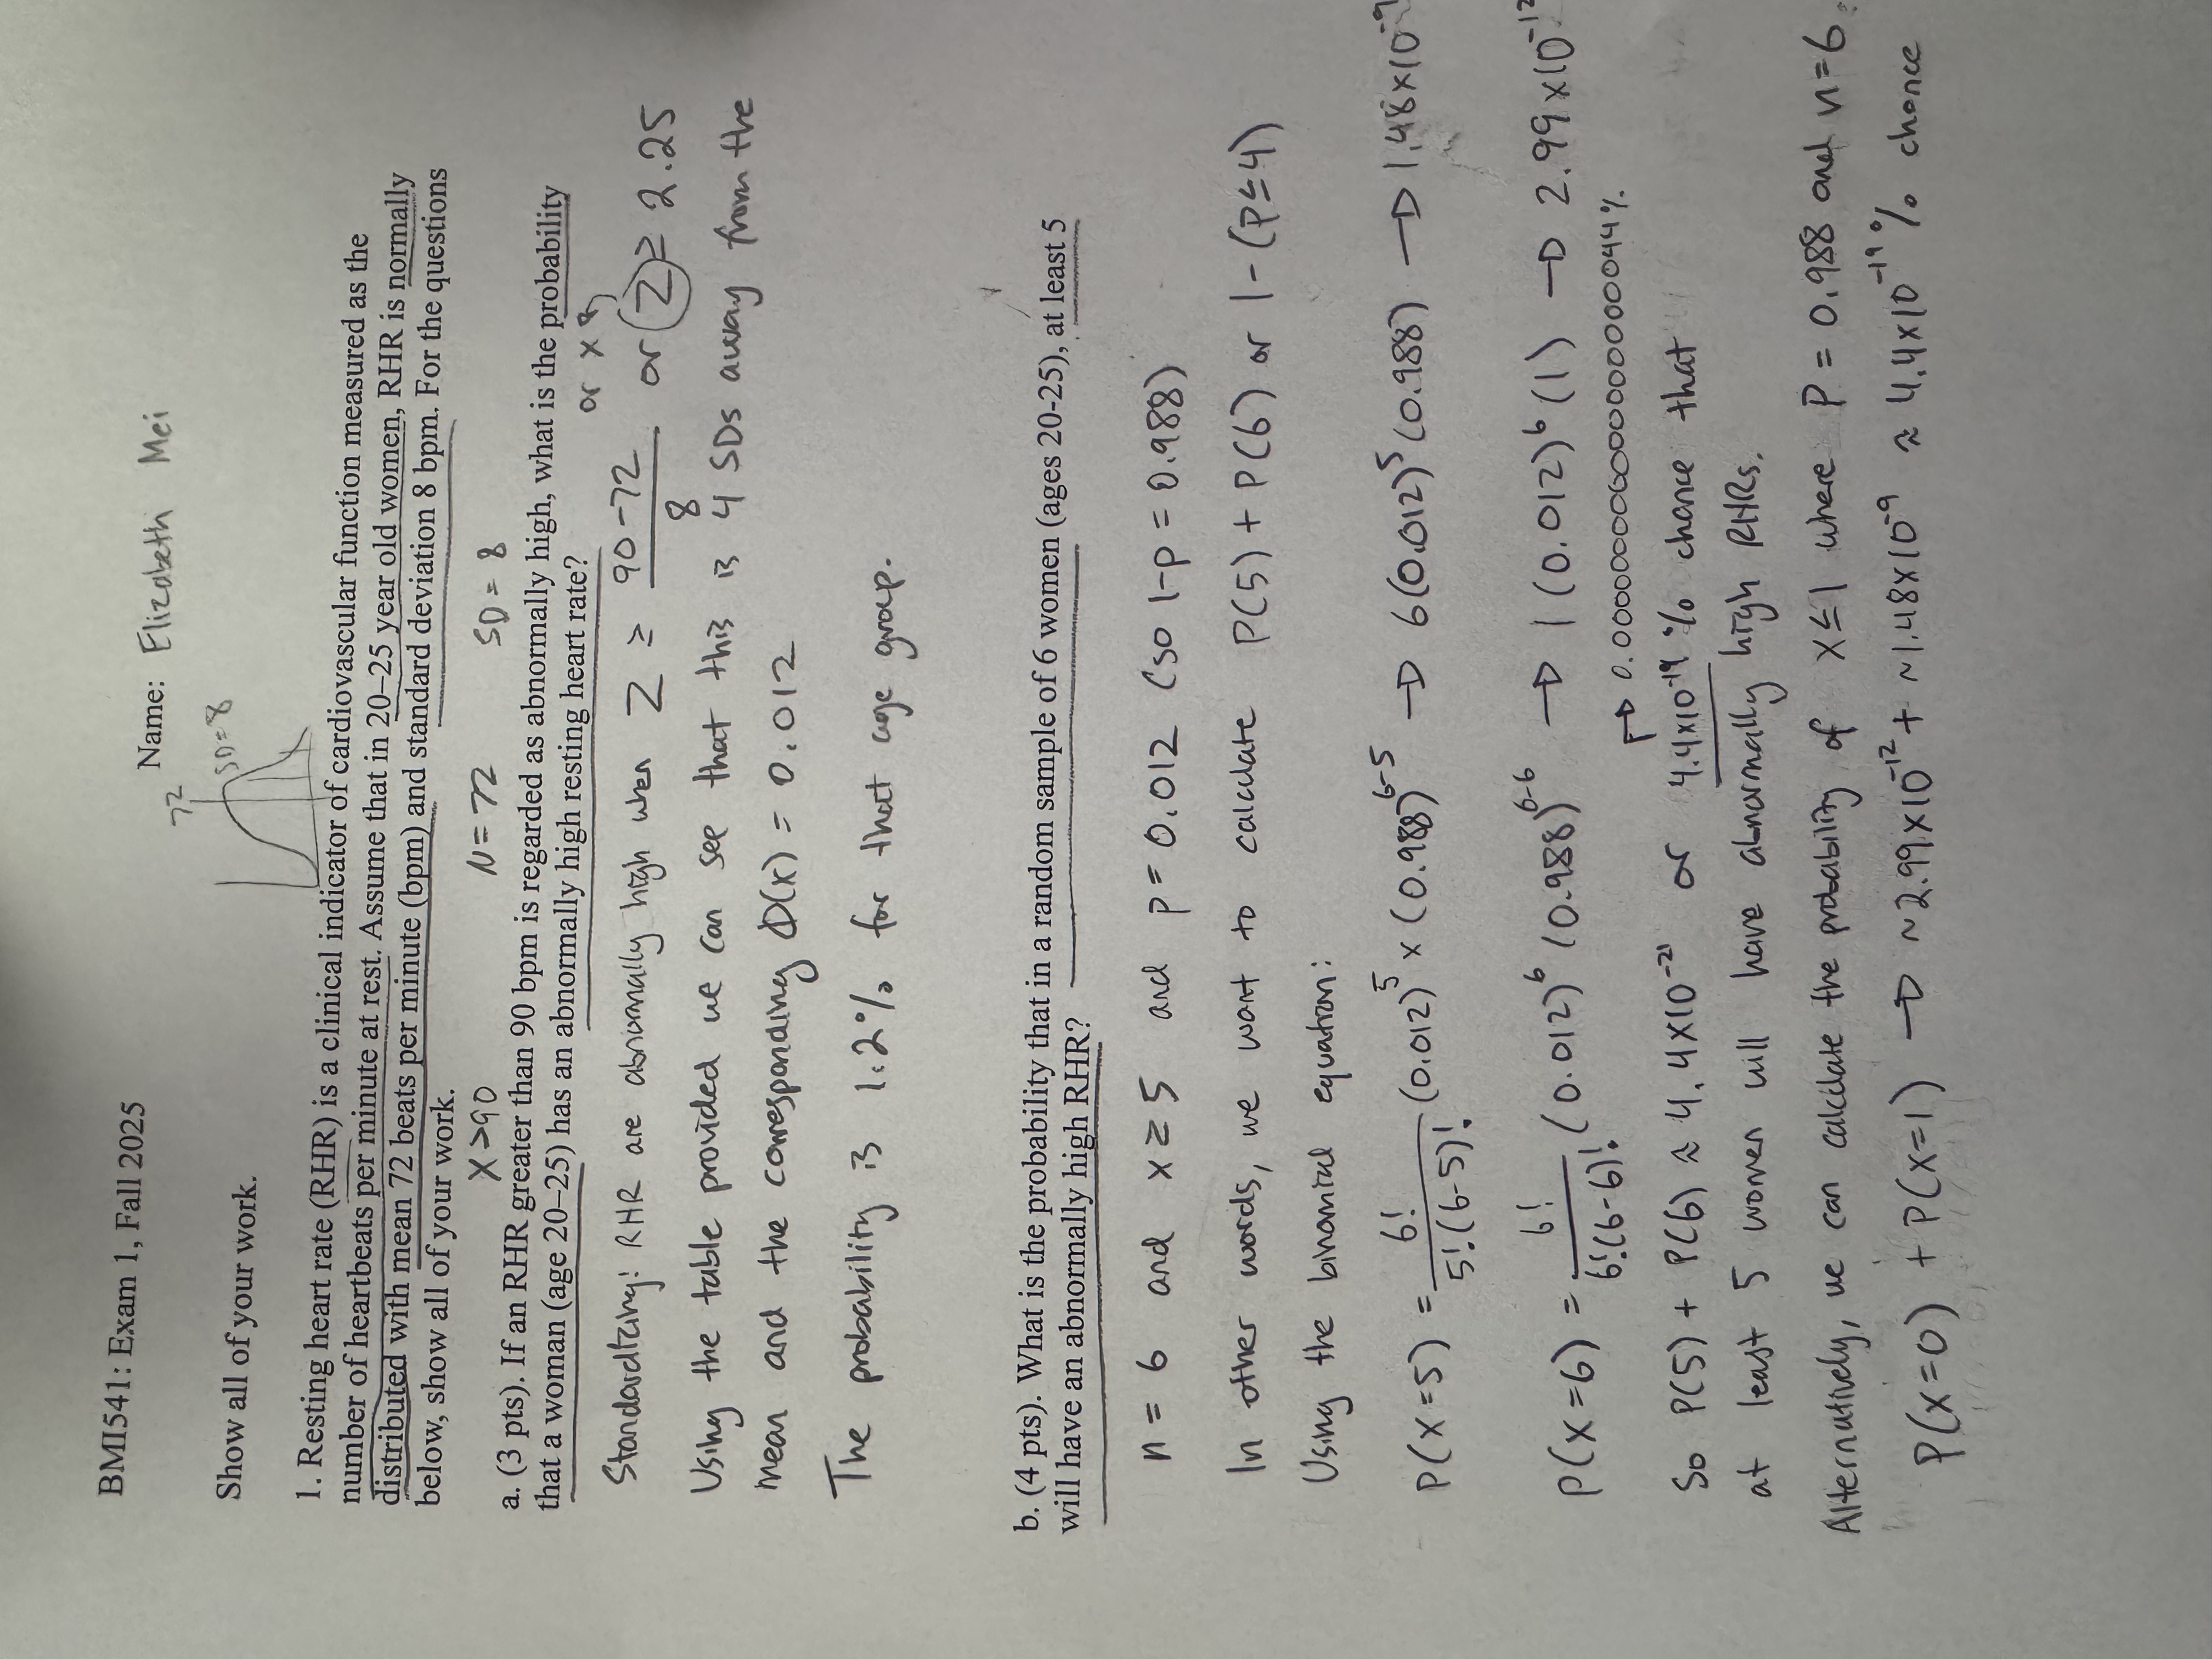 BMI541: Exam 1, Fall 2025
Name: Elizabeth Mei
72
SD=8
Show all of your work.
1. Resting heart rate (RHR) is a clinical indicator of cardiovascular function measured as the
number of heartbeats per minute at rest. Assume that in 20–25 year old women, RHR is normally
distributed with mean 72 beats per minute (bpm) and standard deviation 8 bpm. For the questions
below, show all of your work.
X>90 N=72 SD=8
a. (3 pts). If an RHR greater than 90 bpm is regarded as abnormally high, what is the probability
that a woman (age 20–25) has an abnormally high resting heart rate?
or x
Standardizing: RHR are abnormally high when Z ≥ (90-72)/8 or Z ≥ 2.25
Using the table provided we can see that this is 4 SDs away from the
mean and the corresponding Φ(x) = 0.012
The probability is 1.2% for that age group.
b. (4 pts). What is the probability that in a random sample of 6 women (ages 20-25), at least 5
will have an abnormally high RHR?
n = 6 and x ≥ 5 and p = 0.012 (so 1-p = 0.988)
In other words, we want to calculate P(5) + P(6) or 1-(p≤4)
Using the binomial equation:
P(x=5) = 6!/5!(6-5)! (0.012)^5 × (0.988)^6-5 → 6(0.012)^5 (0.988) → 1.48×10^-9
P(x=6) = 6!/6!(6-6)! (0.012)^6 (0.988)^6-6 → 1 (0.012)^6 (1) → 2.99×10^-12
So P(5) + P(6) ≈ 4.4×10^-21 or 4.4×10^-19 % chance that
at least 5 women will have abnormally high RHRs.
Alternatively, we can calculate the probability of x≤1 where P = 0.988 and n=6.
P(x=0) + P(x=1) → ~2.99×10^-12 + ~1.48×10^-9 ≈ 4.4×10^-19 % chance